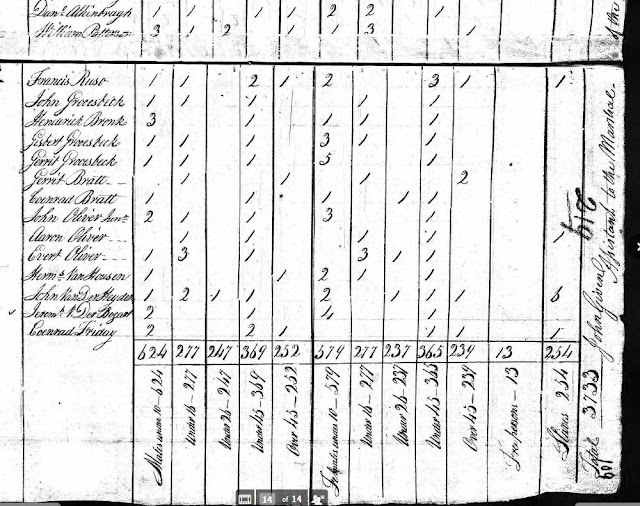 Danl. Atkinbragh 1 1 1 1 2 2 1
William Patterson 3 1 2 1 1 3 1
Francis Ruso 1 1 2 1 2 3 1 1
John Groesbeck 1 1 1 1 1
Hendrick Bronk 3 1 1 1 1
Gisbert Groesbeck 1 1 1 3 1 1
Gerrit Groesbeck 1 1 1 5 1
Gerrit Bratt 1 1 1 2
Coenrad Bratt 1 1 1 1 1
John Oliver Junr. 2 1 1 3 1
Aaron Oliver 1 1 1 1 1
Evert Oliver 1 3 1 3 1 1
Harms. Van Housen 1 1 2 1 1
John Van Der Heyden 1 2 1 1 2 1 1 1 6
Jeremh. V. Der Bogart 2 1 4 1
Coenrad Friday 2 2 1 1 1 1
624 277 247 369 252 579 277 237 365 239 13 254
Males under 10 – 624
Under 16 – 277
Under 26 – 247
Under 45 – 369
Over 45 – 252
Females under 10 – 579
Under 16 – 277
Under 26 – 237
Under 45 – 365
Over 45 – 239
Free persons – 13
Slaves 254
Total 3733
John Given
Assistant to the Marshal
of the
14 of 14